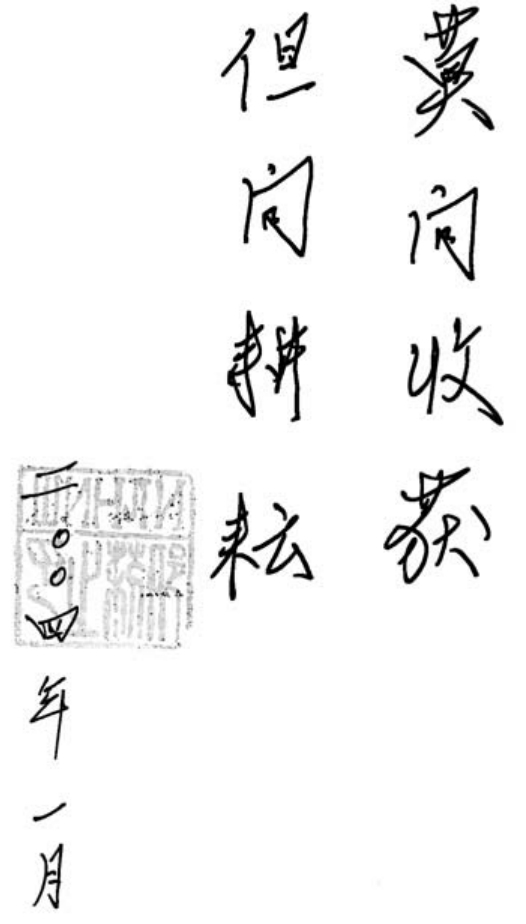 莫问收获
但问耕耘
二〇〇四年一月